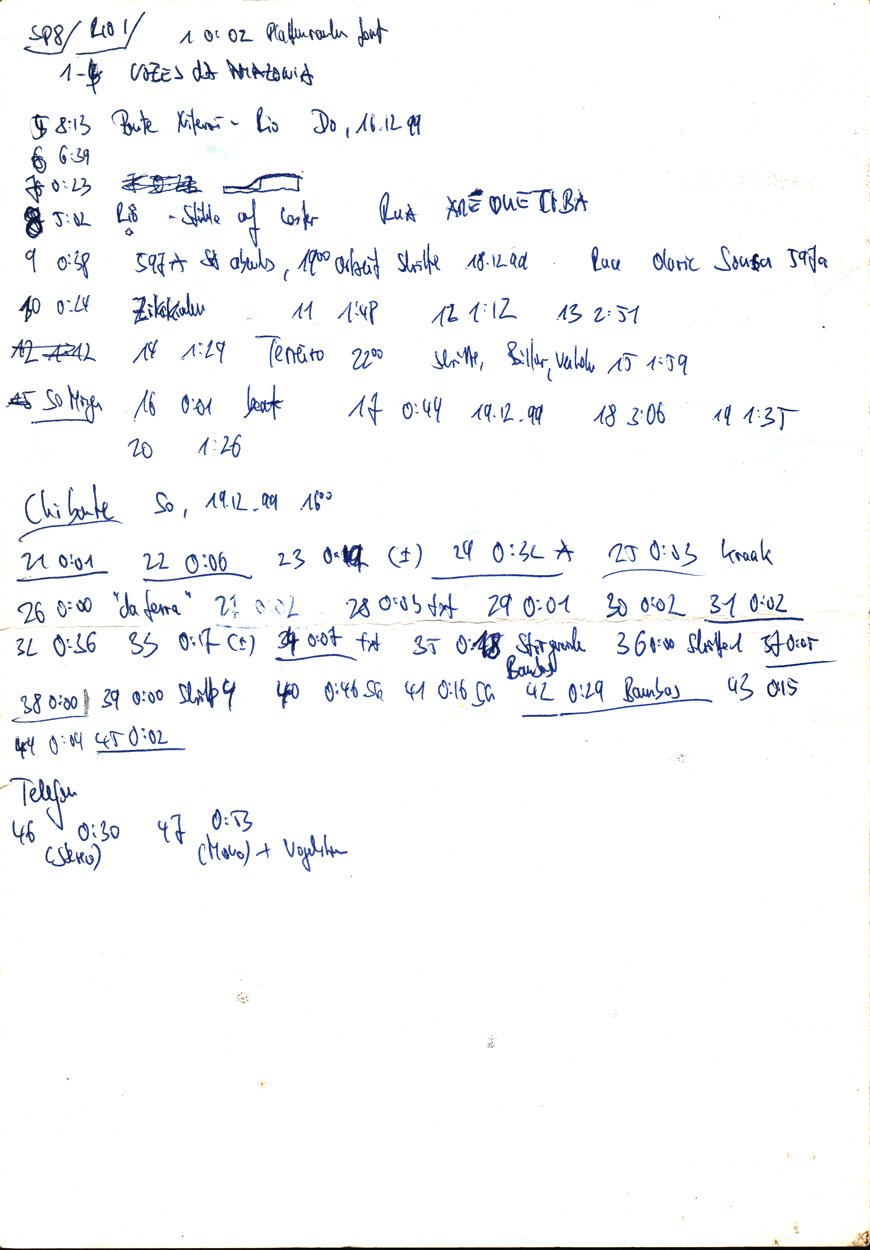 SP8/ RIO 1/ 1 0:02
1-4 VOZES DA AMAZONIA
5 8:13 Ponte Niteroi - Rio Do, 16.12.99
6 6:39
7 0:23
8 5:02 Rio - auf RUA
9 0:38 597A abends, 19⁰⁰ Schritte 18.12.99 Rua Sousa 597a
10 0:24 Zikaden 11 1:48 12 1:12 13 2:51
12 1:12 14 1:29 Terreiro 22⁰⁰ Schritte, Billar, 15 1:59
15 So Morgen 16 0:01 17 0:44 19.12.99 18 3:06 19 1:35
20 1:26
So, 19.12.99 16⁰⁰
21 0:01 22 0:06 23 (I) 24 0:32 A 25 0:03 kraak
26 0:00 "da terra" 27 0:02 28 0:03 txt 29 0:01 30 0:02 31 0:02
32 0:36 33 0:17 (I) 34 0:07 txt 35 0:18 36 0:00 Schritte 1 37 0:05
Bambus
38 0:00 39 0:00 Schritte 4 40 0:46 Sa 41 0:16 Sa 42 0:29 Bambus 43 0:15
44 0:04 45 0:02
Telefon
46 0:30 47 0:53
(Stereo) (Mono) +